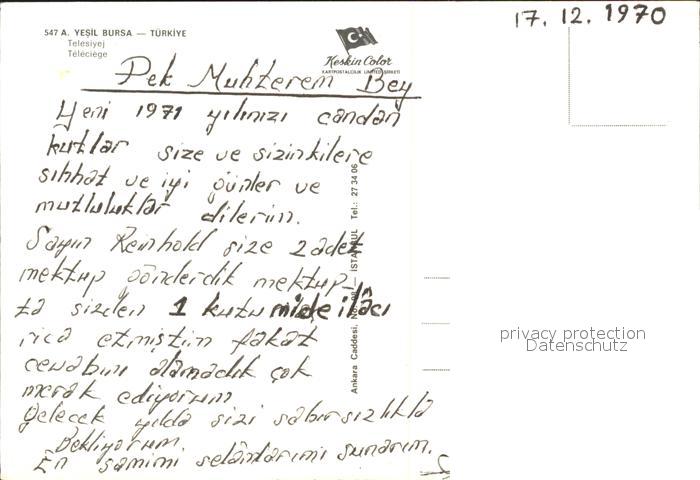 17. 12. 1970
547 A. YEŞİL BURSA — TÜRKİYE
Telesiyej
Téléciège
Keskin Color
KARTPOSTALCILIK LİMİTED ŞİRKETİ
Pek Muhterem Bey
Yeni 1971 yılınızı candan
kutlar size ve sizinkilere
sıhhat ve iyi günler ve
mutluluklar dilerim.
Sayın Reinhold size 2 adet
mektup gönderdik mektup-
ta sizden 1 kutu mide ilâcı
rica etmiştim fakat
cevabını alamadık çok
merak ediyorum
Gelecek yılda sizi sabırsızlıkla
Bekliyorum.
En samimi selâmlarımı sunarım.
Ankara Caddesi, No. 98 — İSTANBUL Tel.: 27 34 06
privacy protection
Datenschutz